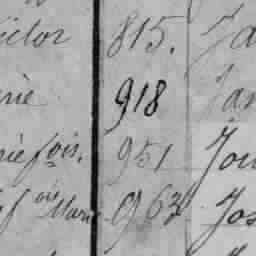 ictor 815. Ja
rie 918 Jan
rie fois. 951 Jou
f ois Marie 963 Jos